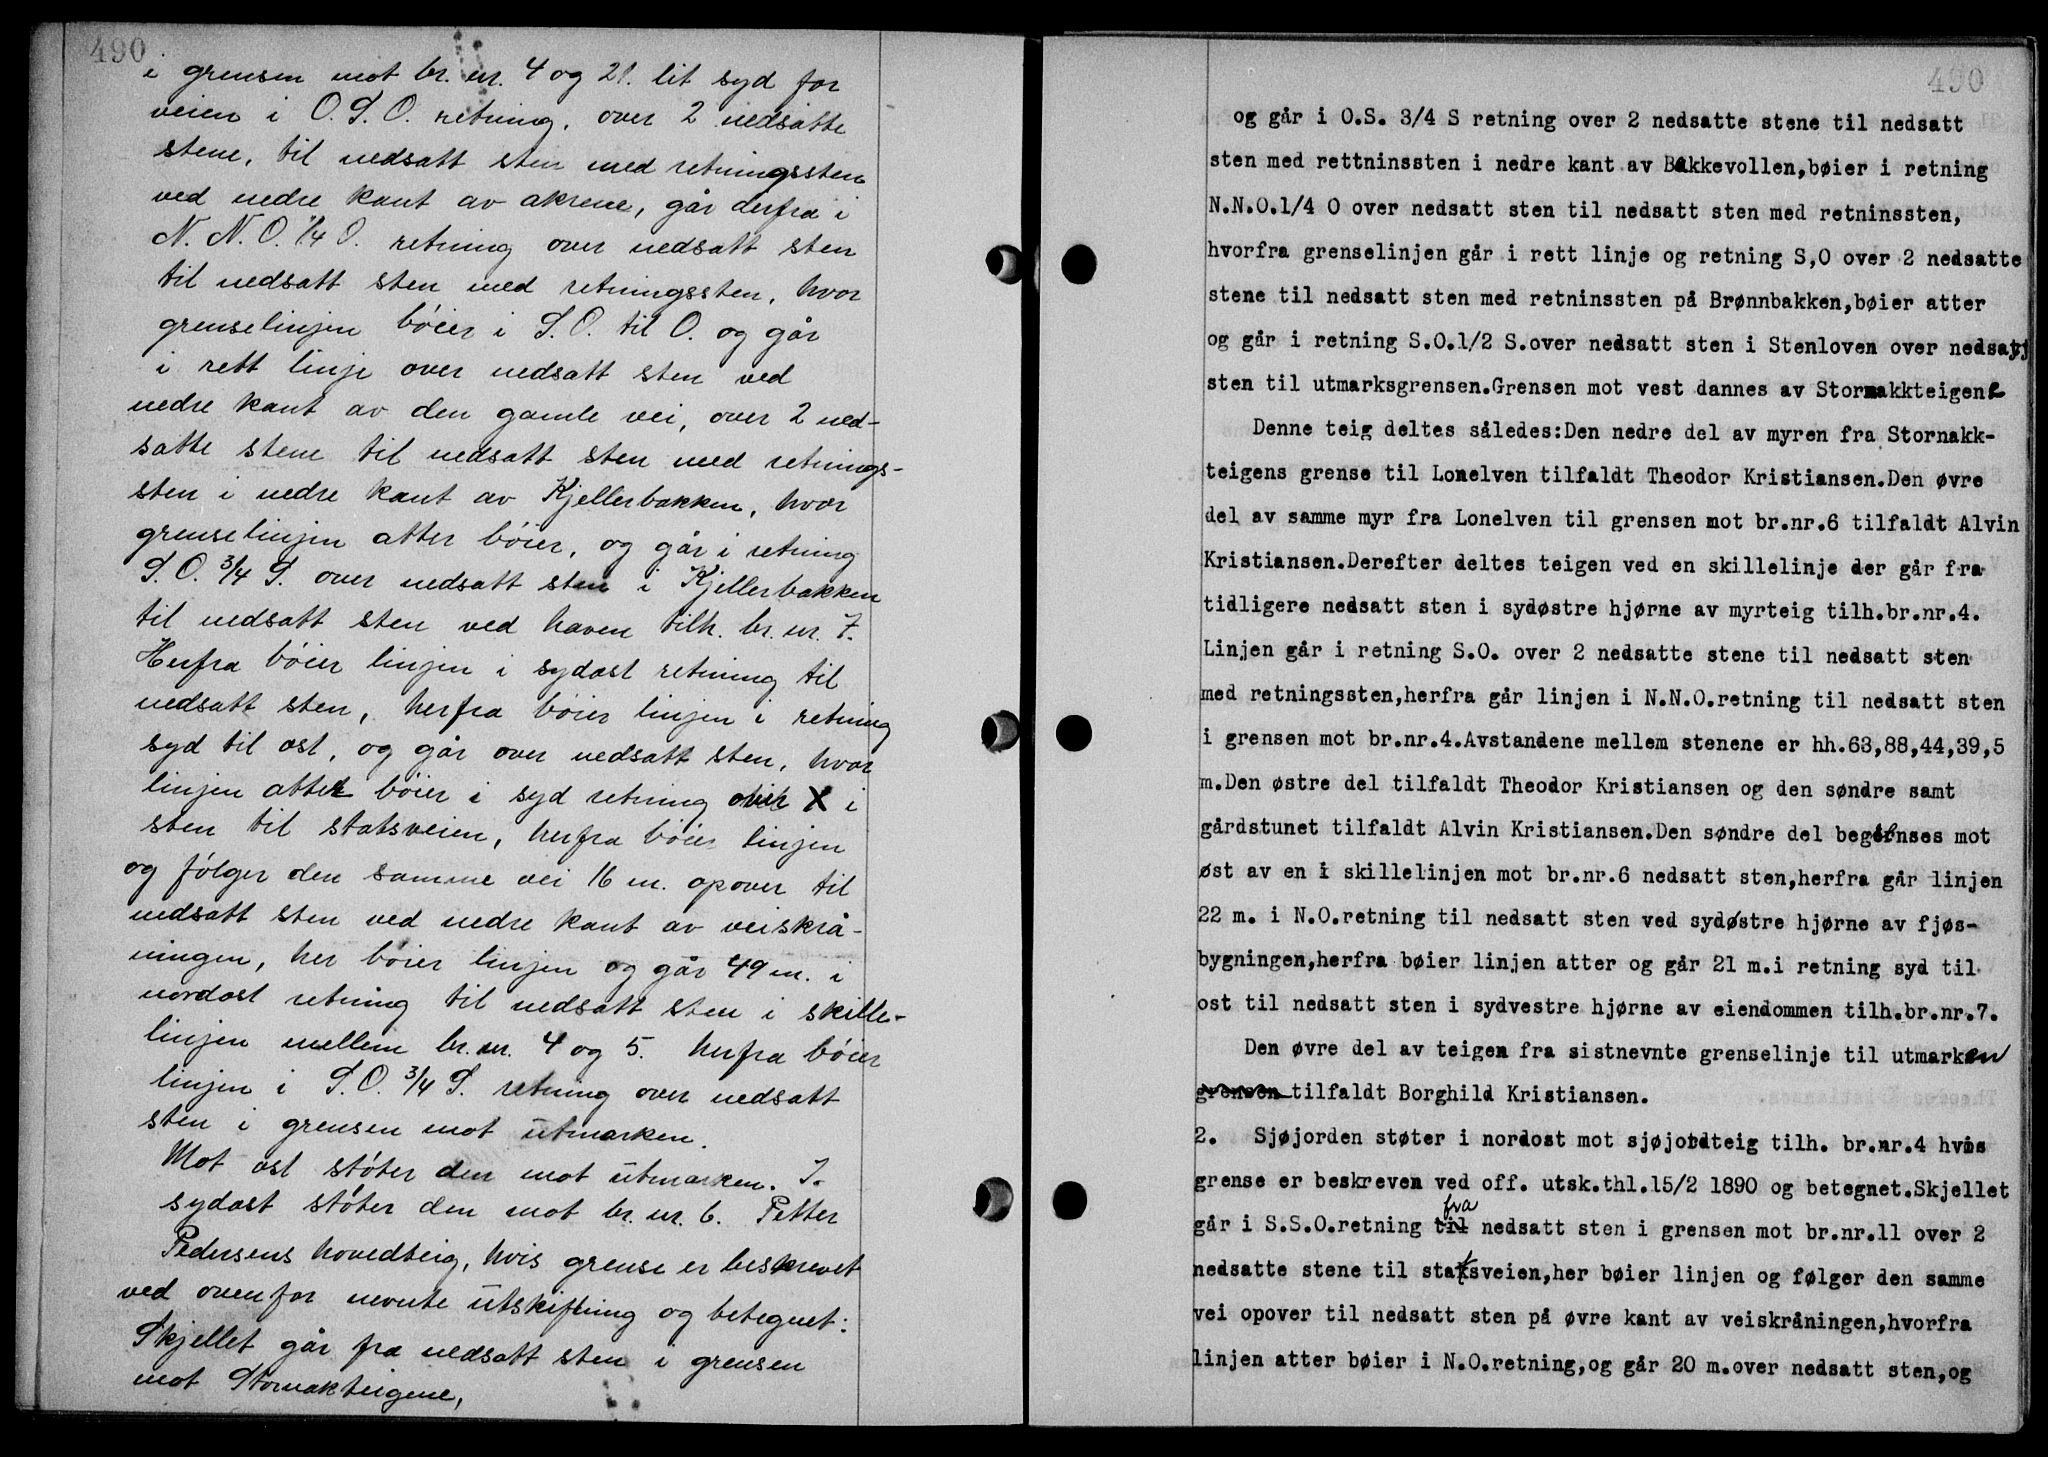 490
i grensen mot br. nr. 4 og 21. lit syd for
veien i O.S.O. retning, over 2 nedsatte
stene, til nedsatt sten med retningssten
ved nedre kant av akrene, går derfra i
N.N.O. 1/4 O. retning over nedsatt sten
til nedsatt sten med retningssten, hvor
grenselinjen bóier i S.O. til O. og går
i rett linje over nedsatt sten ved
nedre kant av den gamle vei, over 2 ned-
satte stene til nedsatt sten med retnings-
sten i nedre kant av Kjellerbakken, hvor
grenselinjen atter bóier, og går i retning
S.O. 3/4 S. over nedsatt sten i Kjellerbakken
til nedsatt sten ved haven tilh. br. nr. 7.
Herfra bóier linjen i sydost retning til
nedsatt sten, herfra bóier linjen i retning
syd til ost, og går over nedsatt sten, hvor
linjen atter bóier i syd retning over X i
sten til statsveien, herfra bóier linjen
og fólger den samme vei 16 m. opover til
nedsatt sten ved nedre kant av veiskrå-
ningen, her bóier linjen og går 49 m. i
nordost retning til nedsatt sten i skille-
linjen mellem br. nr. 4 og 5. herfra bóier
linjen i S.O. 3/4 S. retning over nedsatt
sten i grensen mot utmarken.
Mot ost stóter den mot utmarken. I
sydost stóter den mot br. nr. 6. Petter
Pedersens hovedteig, hvis grense er beskrevet
ved ovenfor nevnte utskiftning og betegnet:
Skjellet går fra nedsatt sten i grensen
mot Stornakteigene,
490
og går i O.S. 3/4 S retning over 2 nedsatte stene til nedsatt
sten med rettninssten i nedre kant av Bakkevollen,bøier i retning
N.N.O.1/4 O over nedsatt sten til nedsatt sten med retninssten,
hvorfra grenselinjen går i rett linje og retning S,O over 2 nedsatte
stene til nedsatt sten med retninssten på Brønnbakken,bøier atter
og går i retning S.O.1/2 S.over nedsatt sten i Stenloven over nedsatt
sten til utmarksgrensen.Grensen mot vest dannes av Stornakkteigene
Denne teig deltes således:Den nedre del av myren fra Stornakk-
teigens grense til Lonelven tilfaldt Theodor Kristiansen.Den øvre
del av samme myr fra Lonelven til grensen mot br.nr.6 tilfaldt Alvin
Kristiansen.Derefter deltes teigen ved en skillelinje der går fra
tidligere nedsatt sten i sydøstre hjørne av myrteig tilh.br.nr.4.
Linjen går i retning S.O. over 2 nedsatte stene til nedsatt sten
med retningssten,herfra går linjen i N.N.O.retning til nedsatt sten
i grensen mot br.nr.4.Avstandene mellem stenene er hh.63,88,44,39,5
m.Den østre del tilfaldt Theodor Kristiansen og den søndre samt
gårdstunet tilfaldt Alvin Kristiansen.Den søndre del begrenses mot
øst av en i skillelinjen mot br.nr.6 nedsatt sten,herfra går linjen
22 m. i N.O.retning til nedsatt sten ved sydøstre hjørne av fjøs-
bygningen,herfra bøier linjen atter og går 21 m.i retning syd til
ost til nedsatt sten i sydvestre hjørne av eiendommen tilh.br.nr.7.
Den øvre del av teigen fra sistnevnte grenselinje til utmarken
grensen tilfaldt Borghild Kristiansen.
2. Sjøjorden støter i nordost mot sjøjordteig tilh. br.nr.4 hvis
grense er beskreven ved off. utsk.thl.15/2 1890 og betegnet.Skjellet
fra
går i S.S.O.retning til nedsatt sten i grensen mot br.nr.11 over 2
nedsatte stene til statsveien,her bøier linjen og følger den samme
vei opover til nedsatt sten på øvre kant av veiskråningen,hvorfra
linjen atter bøier i N.O.retning,og går 20 m.over nedsatt sten,og